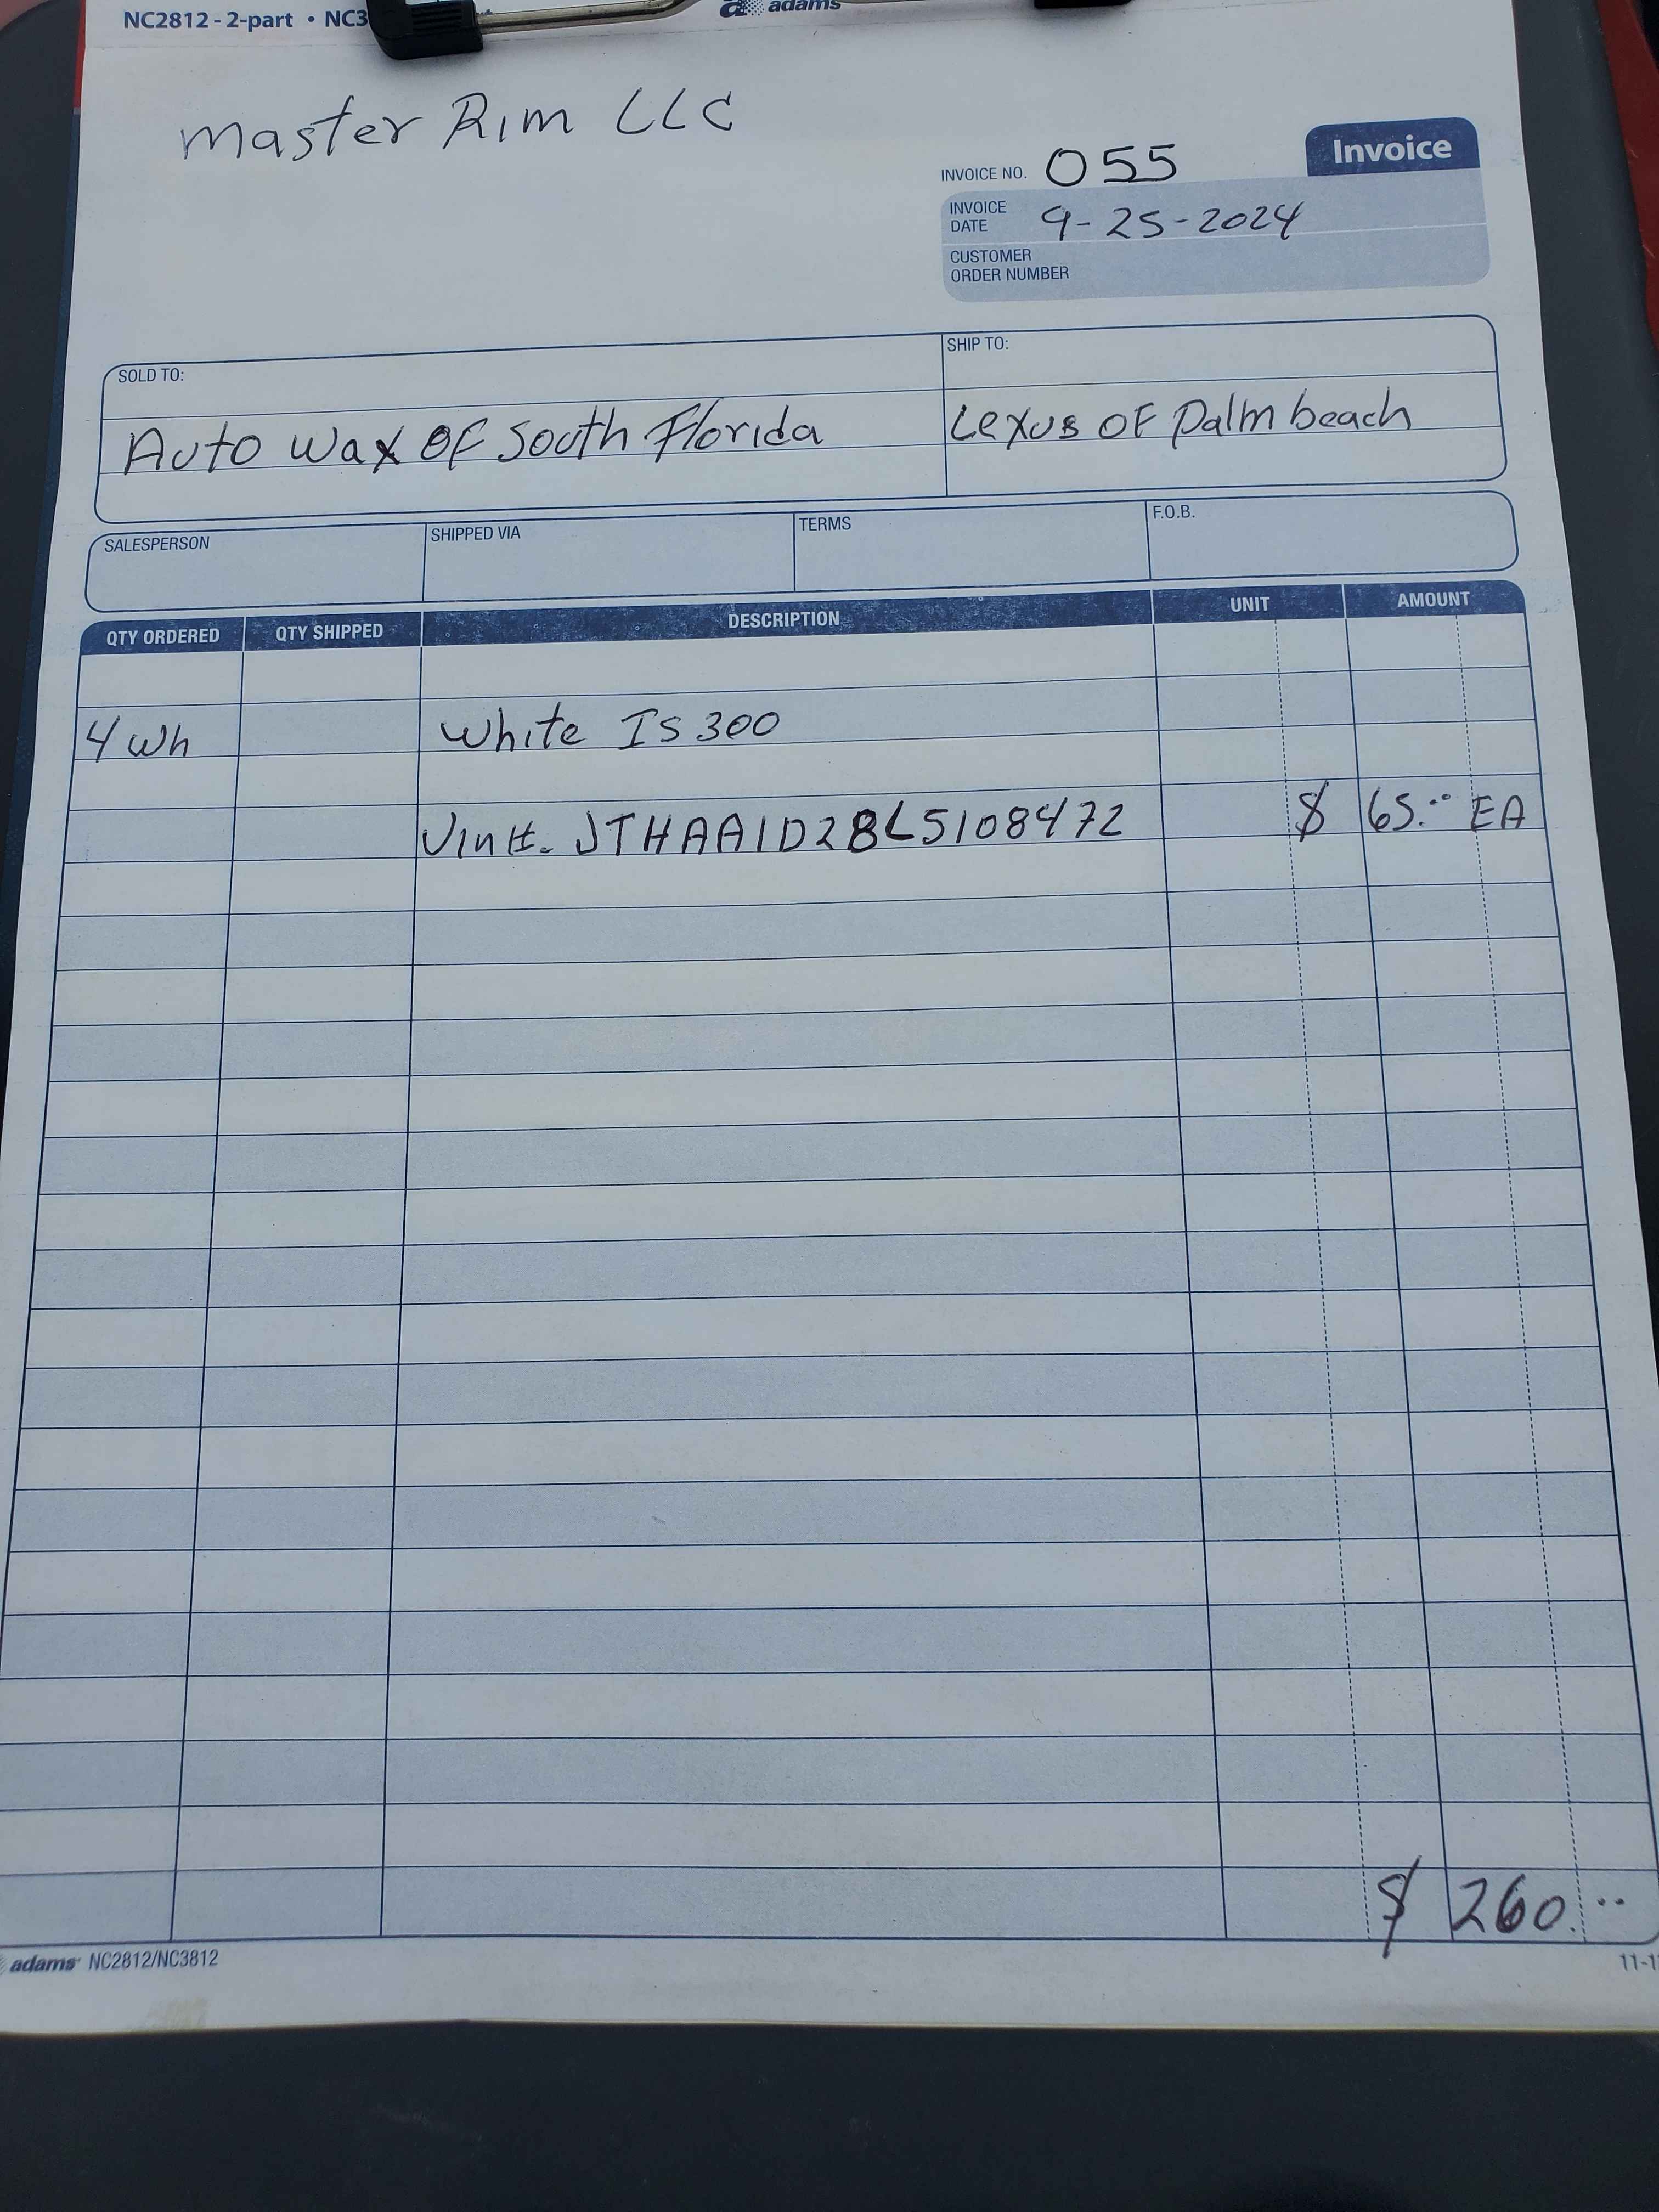 NC2812 - 2-part • NC3
adams
Master Rim LLC
Invoice
INVOICE NO. 055
INVOICE DATE 9-25-2024
CUSTOMER ORDER NUMBER
SOLD TO:
SHIP TO:
Auto Wax OF South Florida
Lexus OF Palm beach
SALESPERSON
SHIPPED VIA
TERMS
F.O.B.
QTY ORDERED QTY SHIPPED DESCRIPTION UNIT AMOUNT
4 Wh White IS300
Vin#. JTHAA1D2BL5108472 $ 65.00 EA
$ 260.00
adams NC2812/NC3812
11-1